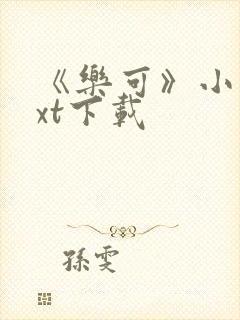 《樂可》小
xt下載
孫雯